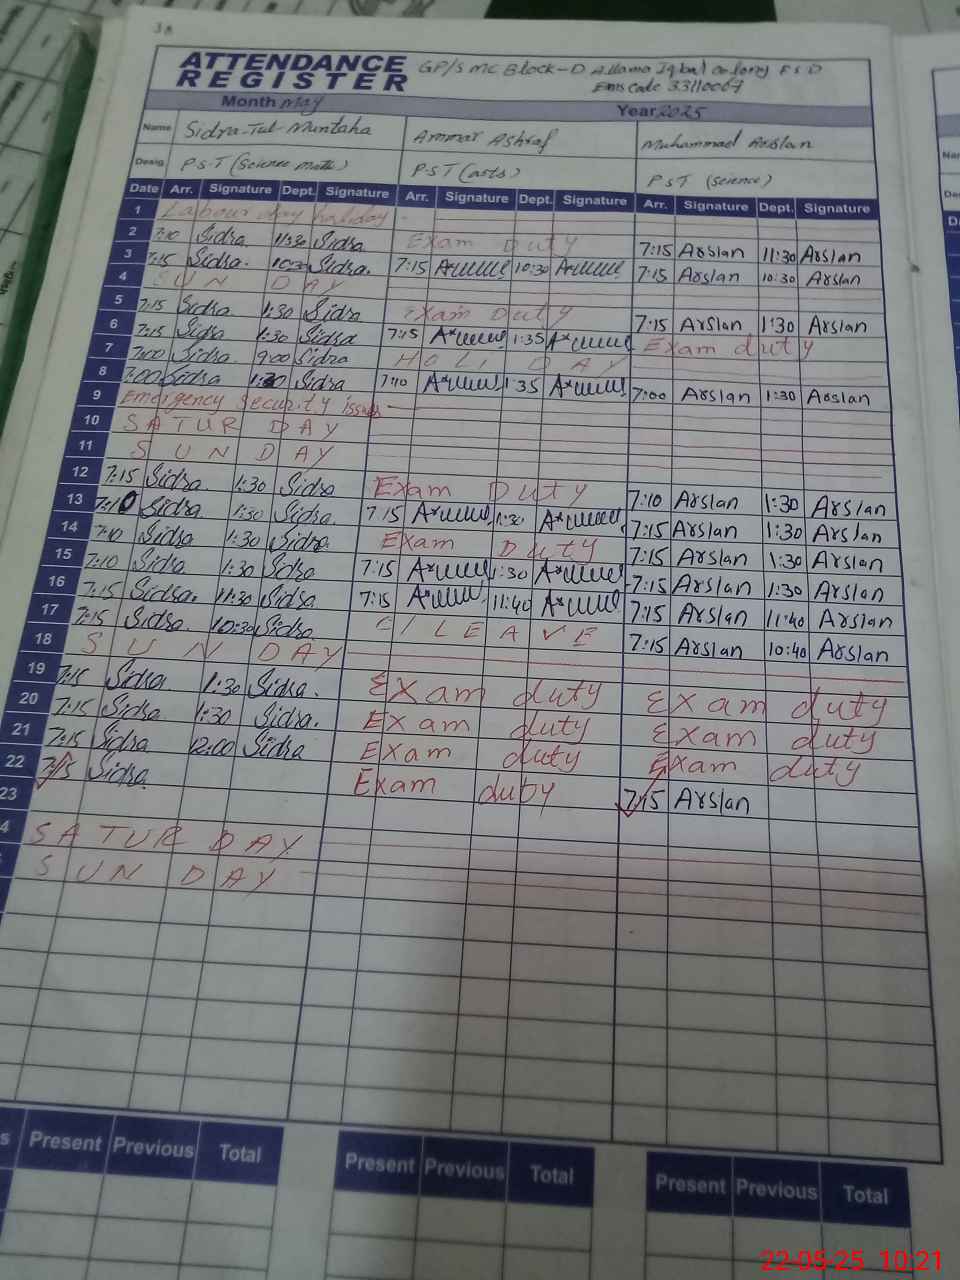 38
ATTENDANCE REGISTER GP/S MC Block-D Allama Iqbal Colony FSD
Emis Code 33110067
Month May Year 2025
Name Sidra-Tul-Muntaha Ammar Ashraf Muhammad Arslan
Desig. P.S.T (Science math) P.S.T (arts) PST (science)
Date Arr. Signature Dept. Signature Arr. Signature Dept. Signature Arr. Signature Dept. Signature
1 Labour day holiday
2 7:10 Sidra 11:30 Sidra Exam Duty 7:15 Arslan 11:30 Arslan
3 7:15 Sidra. 10:30 Sidra. 7:15 10:30 7:15 Arslan 10:30 Arslan
4 SUN DAY
5 7:15 Sidra 1:30 Sidra Exam Duty 7:15 Arslan 1:30 Arslan
6 7:15 Sidra 1:30 Sidra 7:15 1:35 Exam duty
7 7:00 Sidra. 9:00 Sidra HOLI DAY
8 7:00 Sidra 1:30 Sidra 7:10 1:35 7:00 Arslan 1:30 Arslan
9 Emergency Security issue
10 SATUR DAY
11 SUN DAY
12 7:15 Sidra 1:30 Sidra Exam Duty 7:10 Arslan 1:30 Arslan
13 7:10 Sidra. 1:30 Sidra 7:15 1:30 7:15 Arslan 1:30 Arslan
14 7:10 Sidra 1:30 Sidra. Exam Duty 7:15 Arslan 1:30 Arslan
15 7:10 Sidra 1:30 Sidra 7:15 1:30 7:15 Arslan 1:30 Arslan
16 7:15 Sidra. 11:30 Sidra 7:15 11:40 7:15 Arslan 11:40 Arslan
17 7:15 Sidra. 10:30 Sidra. C/LEAVE 7:15 Arslan 10:40 Arslan
18 SUN DAY
19 7:15 Sidra. 1:30 Sidra. Exam duty Exam duty
20 7:15 Sidra. 1:30 Sidra. Exam duty Exam duty
21 7:15 Sidra 12:00 Sidra Exam duty Exam duty
22 7:15 Sidra. Exam duty 7:15 Arslan
23
4 SATUR DAY
SUN DAY
s Present Previous Total Present Previous Total Present Previous Total
22-05-25 10:21